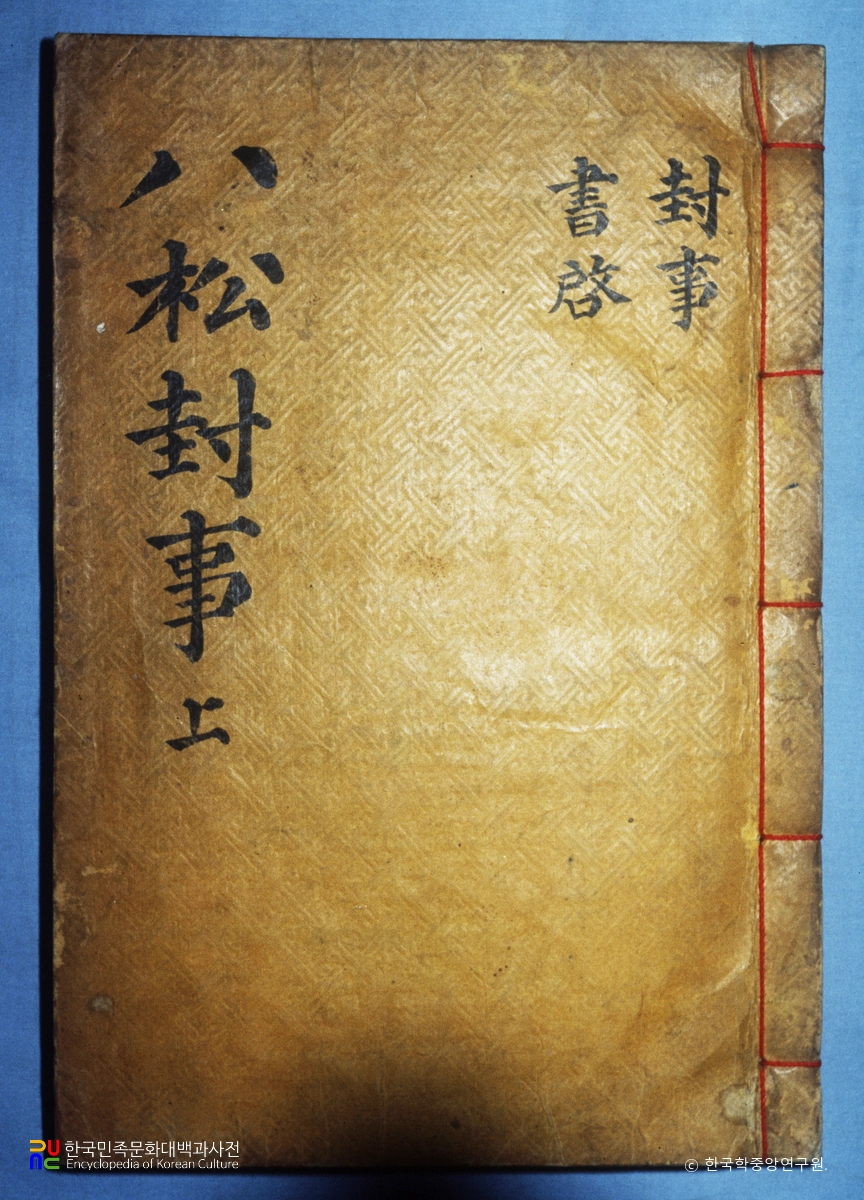 封事
書啓
八松封事 上
한국민족문화대백과사전
Encyclopedia of Korean Culture
© 한국학중앙연구원.